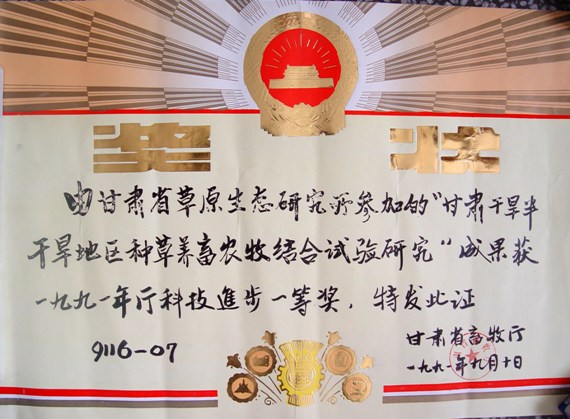 奖状
由甘肃省草原生态研究所参加的"甘肃干旱半
干旱地区种草养畜农牧结合试验研究"成果获
一九九一年厅科技進步一等奖，特发此证
9116-07
甘肃省畜牧厅
一九九一年九月十日